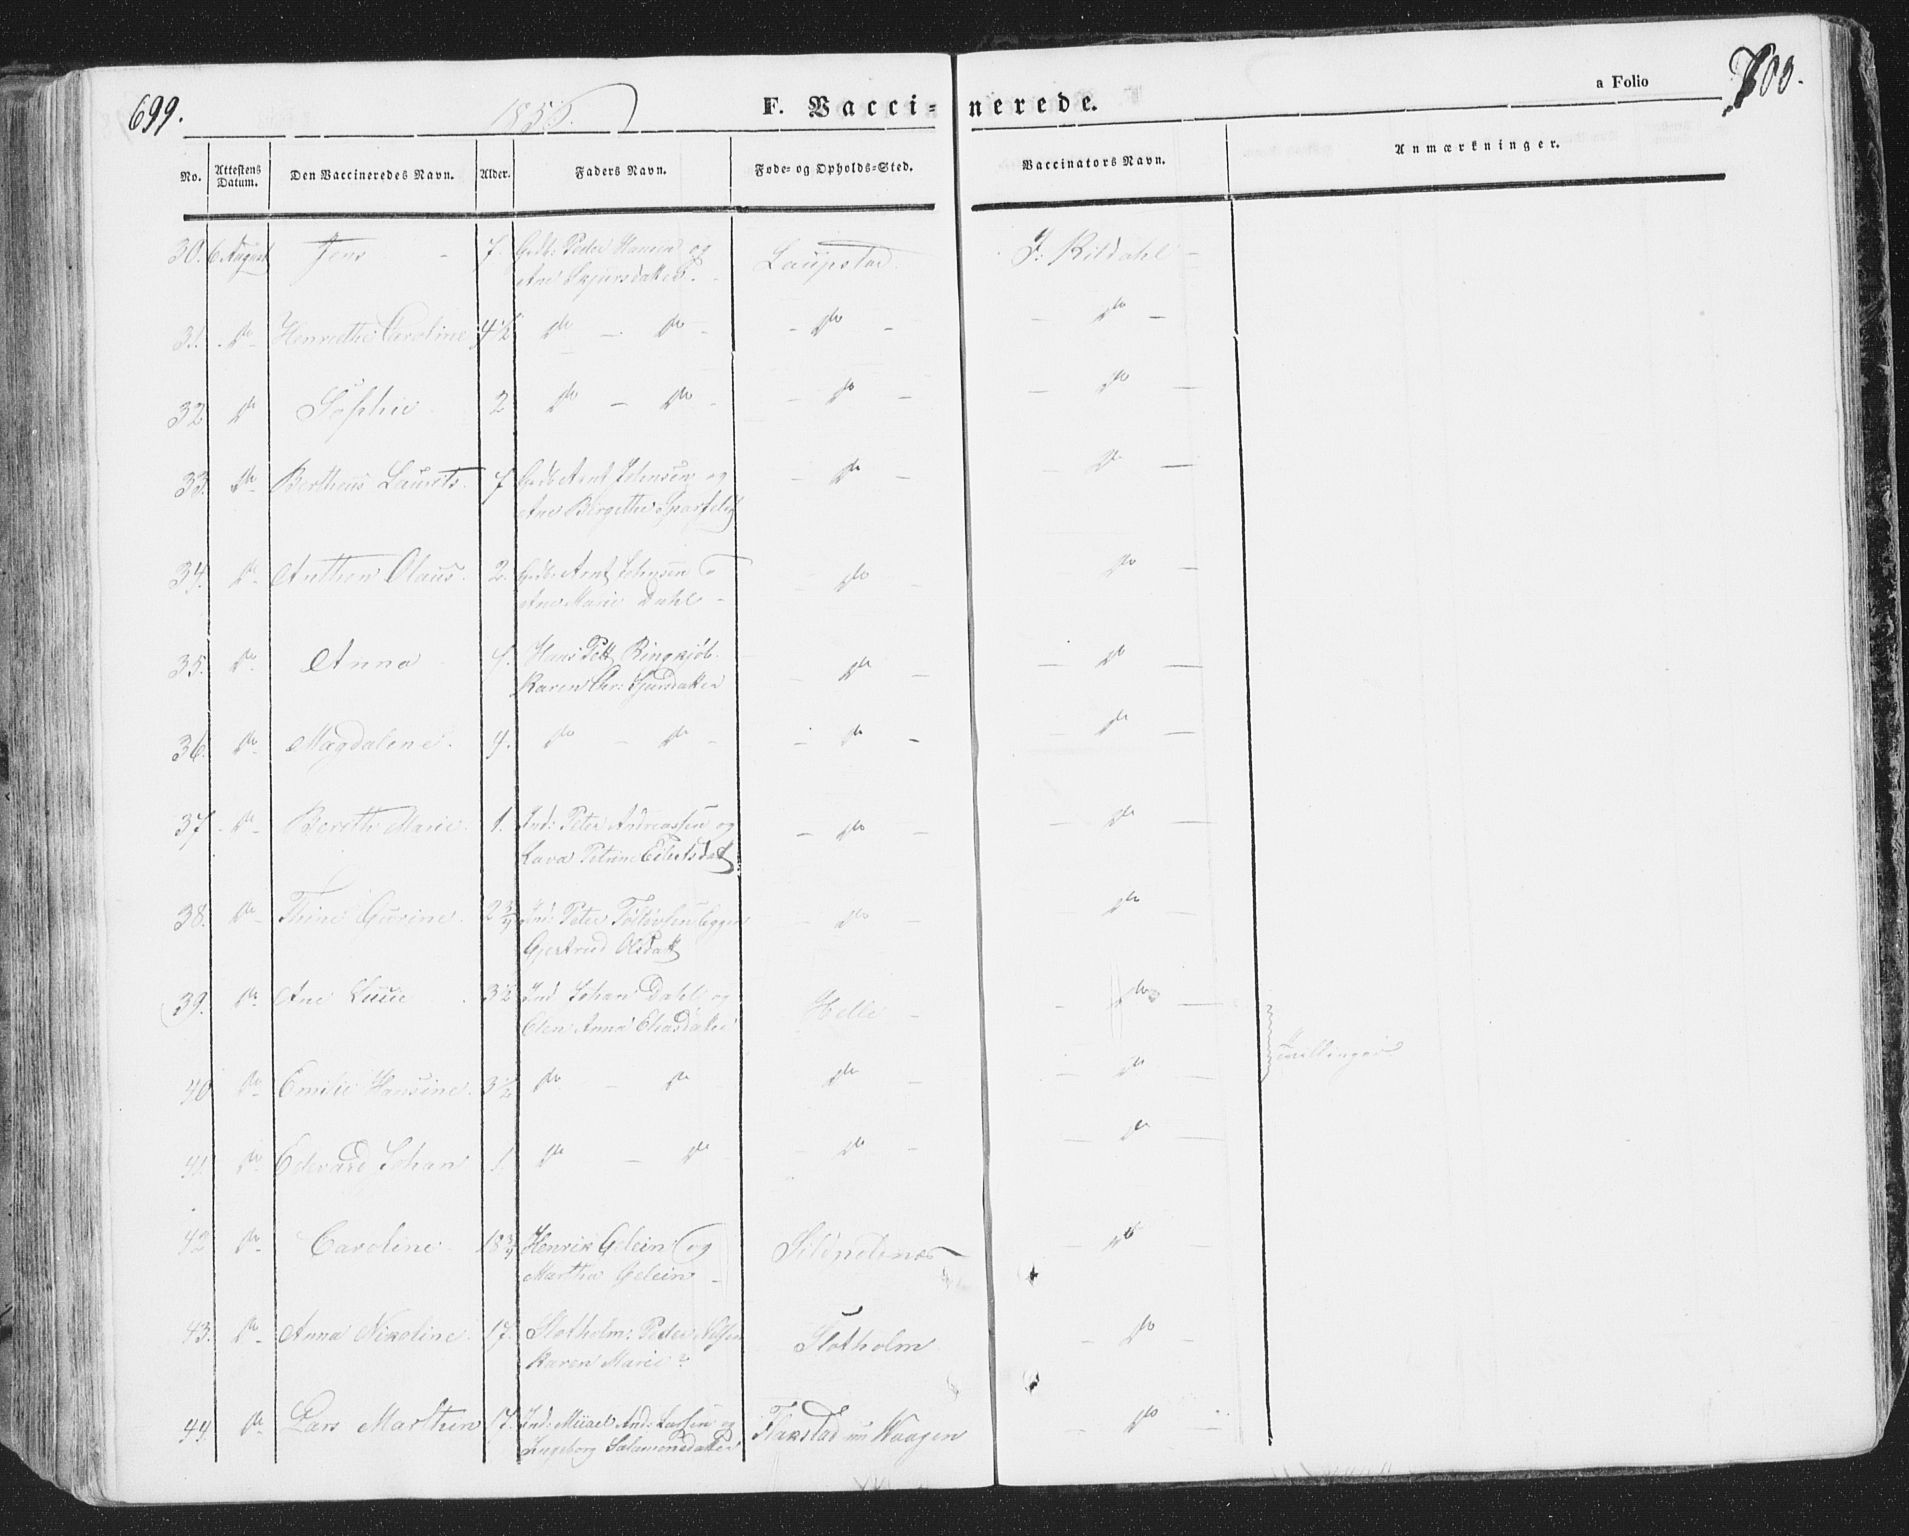 699.
1856.
F. Vacci=nerede.
a Folio
700.
No.
Attestens Datum.
Den Vaccineredes Navn.
Alder.
Faders Navn.
Føde- og Opholds-Sted.
Vaccinators Navn.
Anmærkninger.
30. 6 August Jens - 7. Gdb: Peder Hansen og Laupstad. J: Kildahl -
Ane Sjursdatter. -
31. do Henriethe Caroline 4 1/2 do - do - - do - - do -
32 do Sophie 2 do - do - - do - - do -
33. do Bertheus Laurits. 7 Gdb Arnt Johnsen og - do - - do -
Ane Bergethe
34. do Anthon Olaus. 2. Gdb: Arnt Johnsen - do - - do -
Ane Marie Dahl -
35. do Anna 7. Hans Pett Ringkjøb. - do - - do -
Karen Chr: Sjursdatter
36. do Magdalene. 4. do - do - - do - - do -
37. do Bereth Marie. 1. Ind: Peter Andreassen og - do - - do -
Lava Petrine Eilertsdat
38. do Trine Gurine. 2 3/4 Ind: Peter - do - - do -
Gjertrud Olsdatt
39. do Ane 3 1/2 Ind Johan Dahl og Helle - - do -
Elen Anna Eliasdatter
40 do Emilie Hansine. 3 1/2 do - do - do - - do - Tvillinger
41. do Edevard Johan 1. do - do - do - - do -
42 do Caroline 18 3/4 Henrik Gelein og - do -
Martha Gelein -
43. do Anna Nikoline. 17. Slotholm: Peder Slotholm - do -
Karen Marie?
44 do Lars Marthin 17. Ind: Mikael And: Larsen og Flakstad nu Waagen - do -
Ingeborg Salamonsdatter